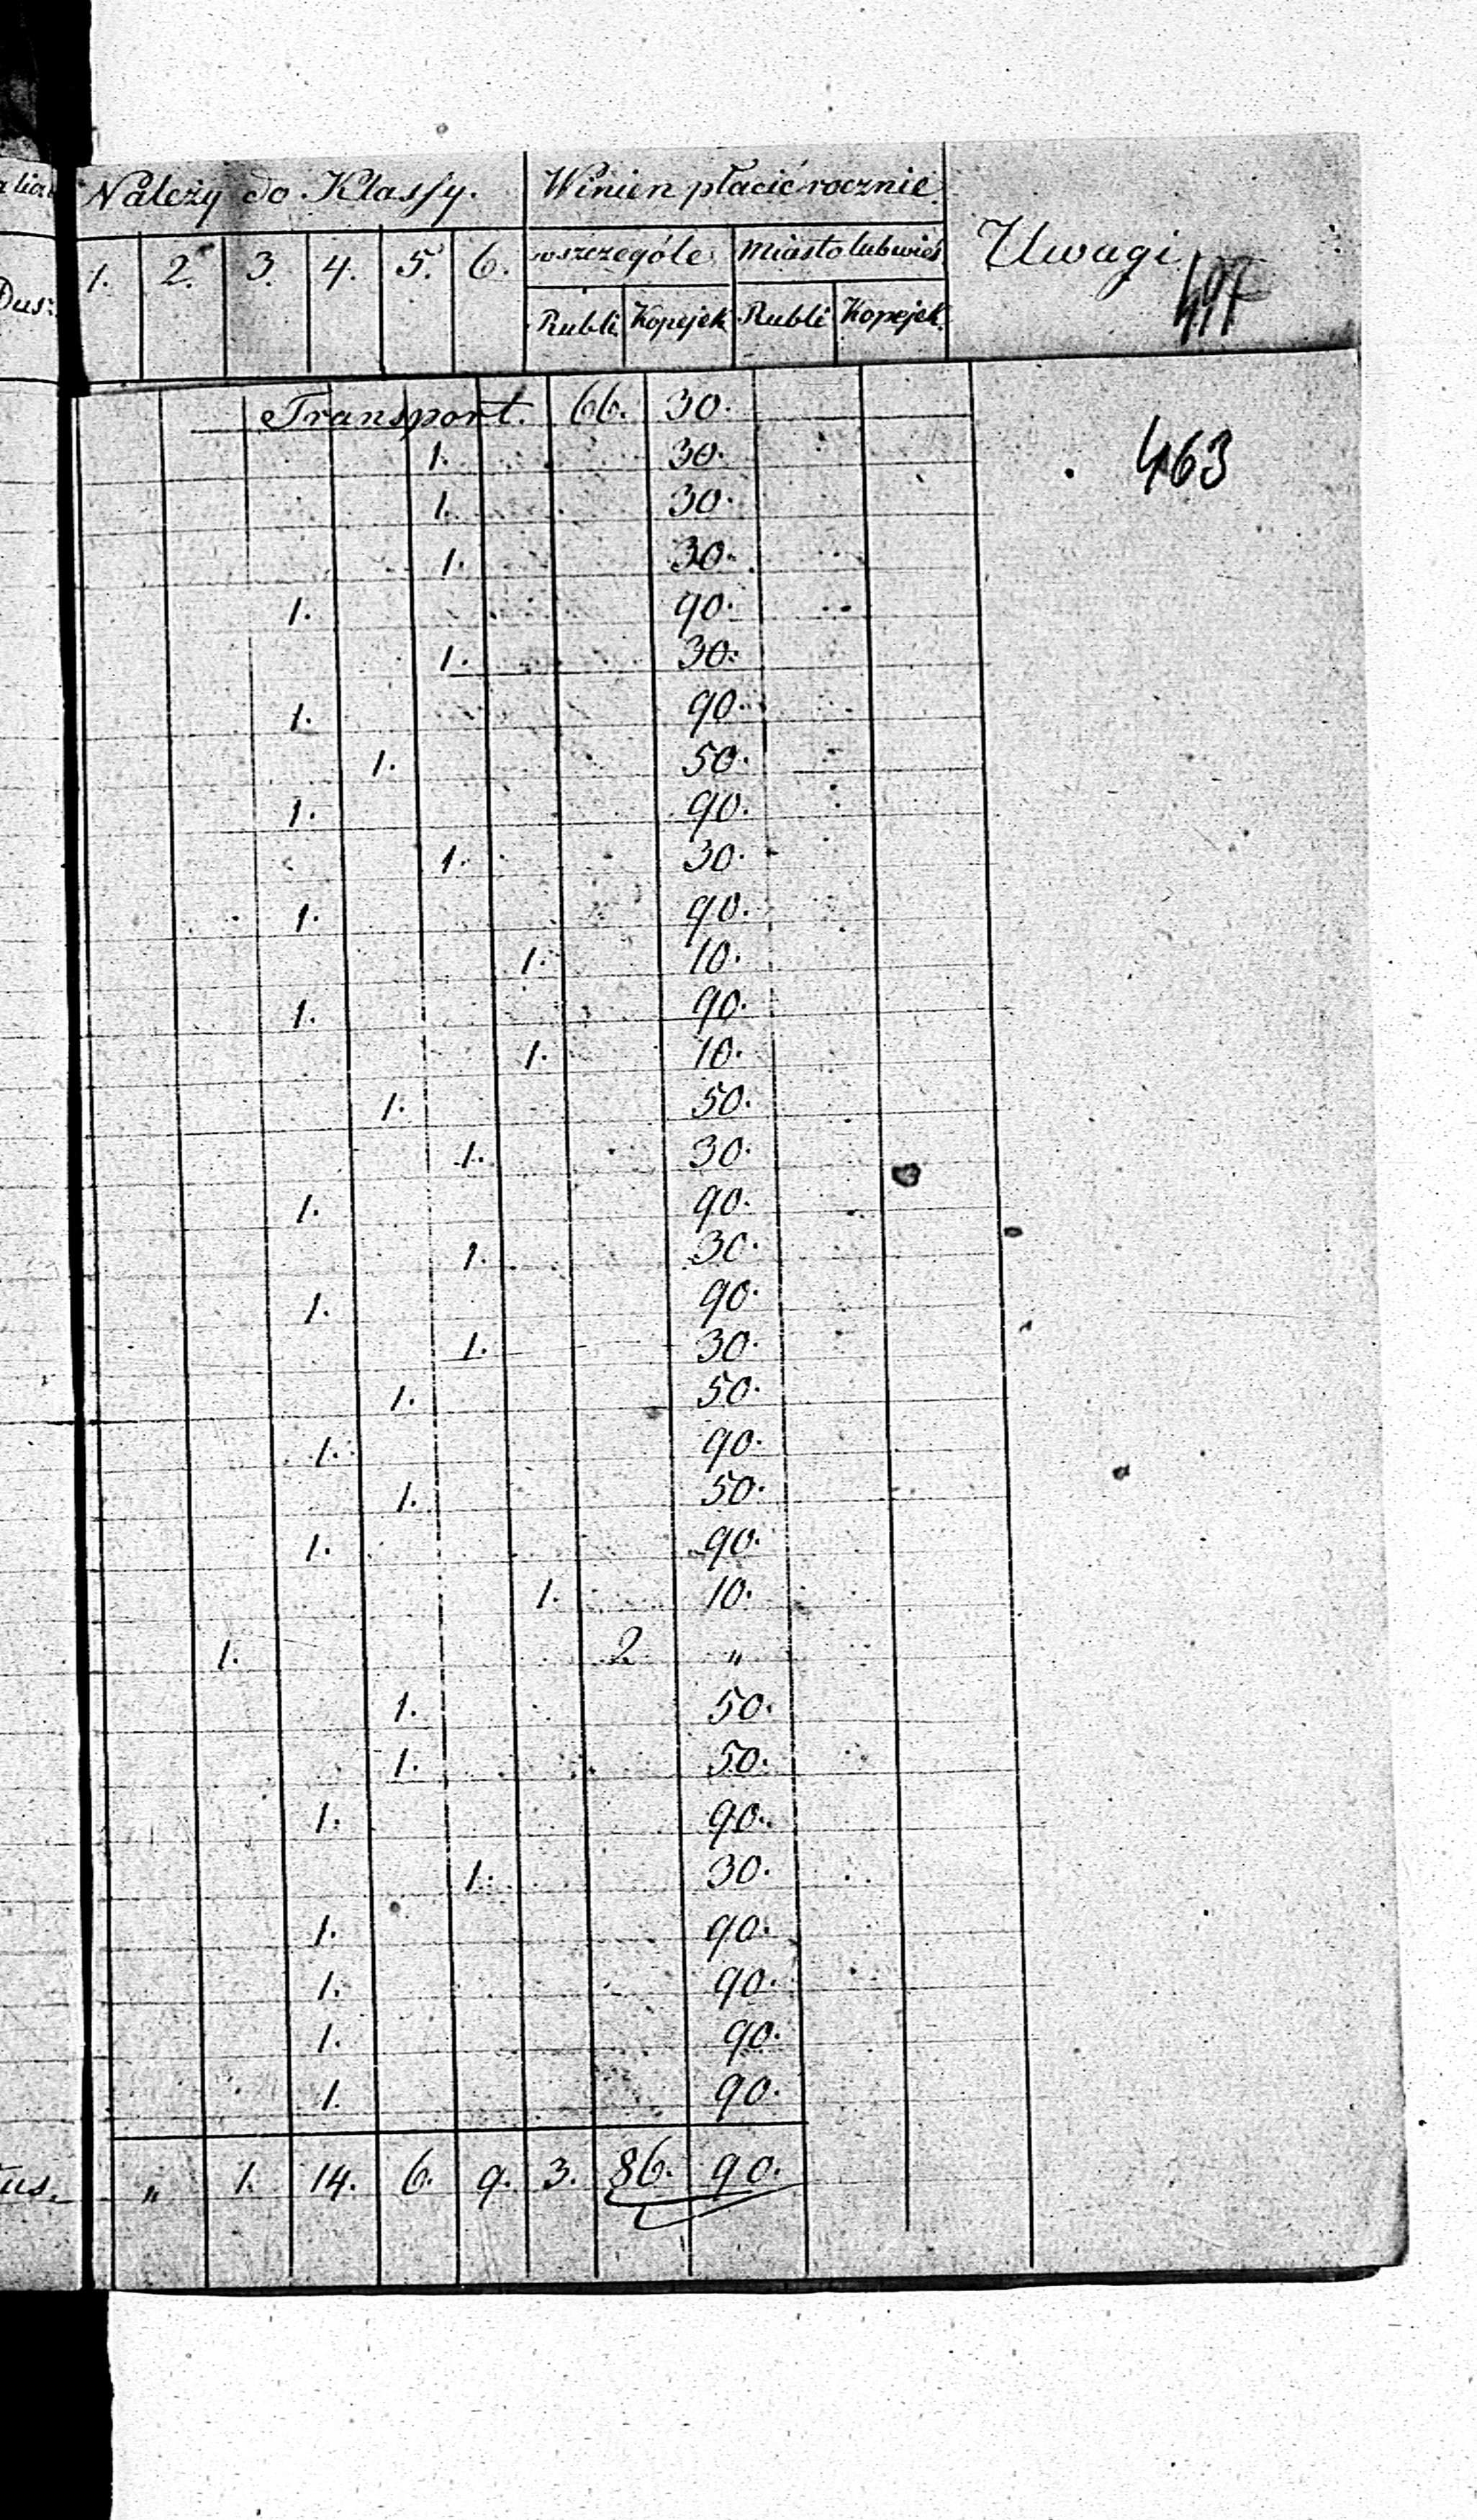 Należy do Klassy. Winien płacić rocznie
Uwagi
1. 2. 3. 4. 5. 6. wszczególe Miasto lub wieś
Dus:
Rubli Kopejek Rubli Kopejek
Transport. 66. 30.
463
1. 30.
1. 30.
1. 30.
1. 90.
1. 30.
1. 90.
1. 50.
1. 90.
1. 30.
1. 90.
1. 10.
1. 90.
1. 10.
1. 50.
1. 30.
1. 90.
1. 30.
1. 90.
1. 30.
1. 50.
1. 90.
1. 50.
1. 90.
1. 10.
1. 2 "
1. 50.
1. 50.
1. 90.
1. 30.
1. 90.
1. 90.
1. 90.
1. 90.
" 1. 14. 6. 9. 3. 86. 90.